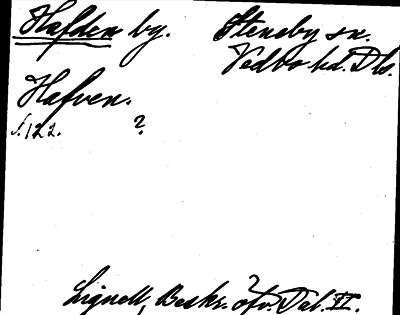 Hafden by. Steneby sn.
Vedbo hd. Dls.
Hafven.
s. 122. ?
?
Lignell, Beskr. öfv. Dal. II.